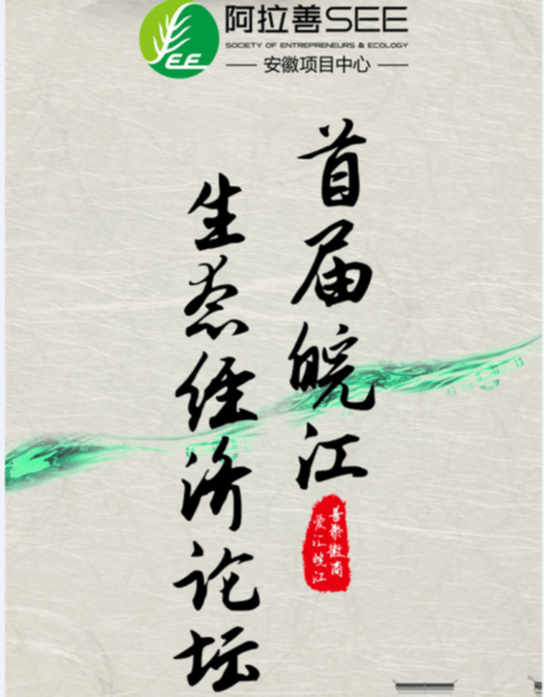 阿拉善SEE
SOCIETY OF ENTREPRENEURS & ECOLOGY
安徽项目中心
首届皖江
生态经济论坛
善聚徽商
爱汇皖江